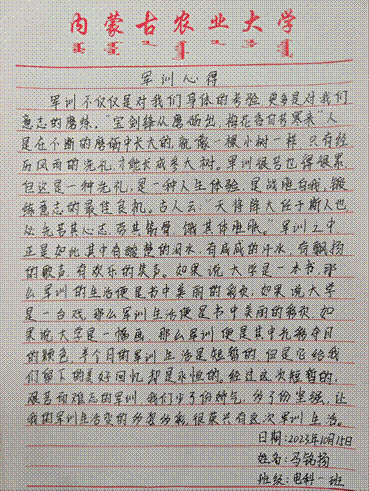 内蒙古农业大学
军训心得
军训不仅仅是对我们身体的考验,更多是对我们
意志的磨练。“宝剑锋从磨砺出,梅花香自苦寒来”人
是在不断的磨砺中长大的,就像一棵小树一样,只有经
历风雨的洗礼,才能长成参天大树。军训很苦也得很累
但这是一种洗礼,是一种人生体验,是战胜自我,锻
练意志的最佳良机。古人云:“天将降大任于斯人也,
必先苦其心志,劳其筋骨,饿其体肤。”军训之中
正是如此,其中有酸楚的泪水,有咸咸的汗水,有飘扬
的歌声,有欢乐的笑声。如果说大学是一本书,那
么军训的生活便是书中美丽的彩页,如果说大学
是一台戏,那么军训生活便是戏中美丽的彩衣,如
果说大学是一幅画,那么军训便是其中扎根夺目
的颜色,半个月的军训生活是短暂的,但是它给我
们留下的美好回忆却是永恒的。经过这次短暂的,
艰苦而难忘的军训,我们少了份娇气,多了份坚强,让
我的军训生活变的多姿多彩,很荣兴有这次军训生活。
日期:2023年10月15日
姓名:马铭扬
班级:电科一班